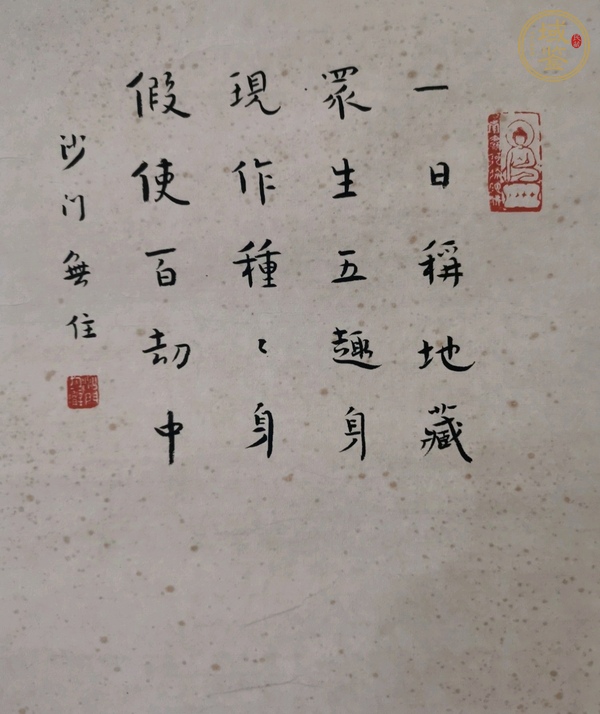 一日稱地藏
眾生五趣身
現作種〻身
假使百劫中
沙门無住